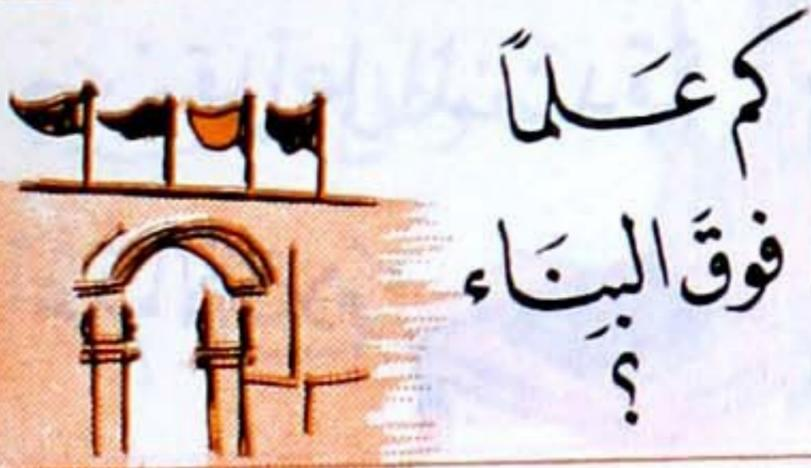 كم عَلماً
فوقَ البِنَاء
؟